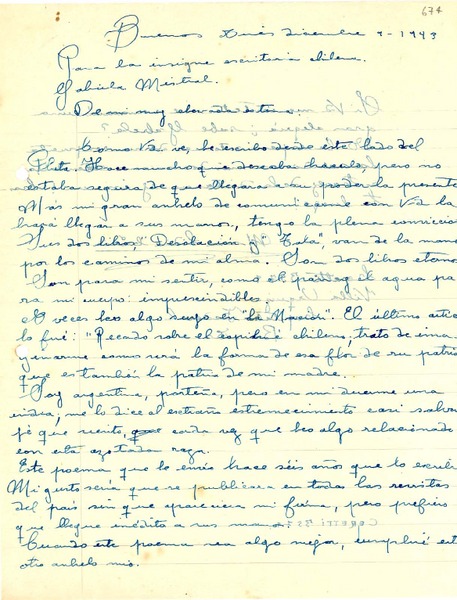 674
Buenos Aires diciembre 9-1943
Para la insigne escritora chilena.
Gabriela Mistral.
De mi muy elevada estima:
Como Vd. ve, le escribo desde éste lado del
Plata. Hace mucho que deseaba hacerlo, pero no
estaba segura de que llegara a su poder la presente
Más mi gran anhelo de comunicarme con Vd. la
hará llegar a sus manos, tengo la plena convicción
Sus dos libros, "Desolación y "Tala", van de la mano
por los caminos de mi alma. Son dos libros eternos
Son para mi sentir, como el pan y el agua pa
ra mi cuerpo: imprescindibles.
A veces leo algo suyo en "La Nación". El último artícu
lo fué: "Recado sobre el copihue chileno, trato de ima
ginarme como será la forma de esa flor de su patria
que es también la patria de mi madre.
Soy argentina, porteña, pero en mi duerme una
india; me lo dice el extraño estremecimiento casi salva
je que siento, cada vez que leo algo relacionado
con esta azotada raza.
Este poema que le envío hace séis años que lo escribí
Mi gusto sería que se publicara en todas las revistas
del país sin que apareciera mi firma, pero prefiero
que llegue inédito a sus manos
Cuando este poema sea algo mejor, cumpliré este
otro anhelo mío.